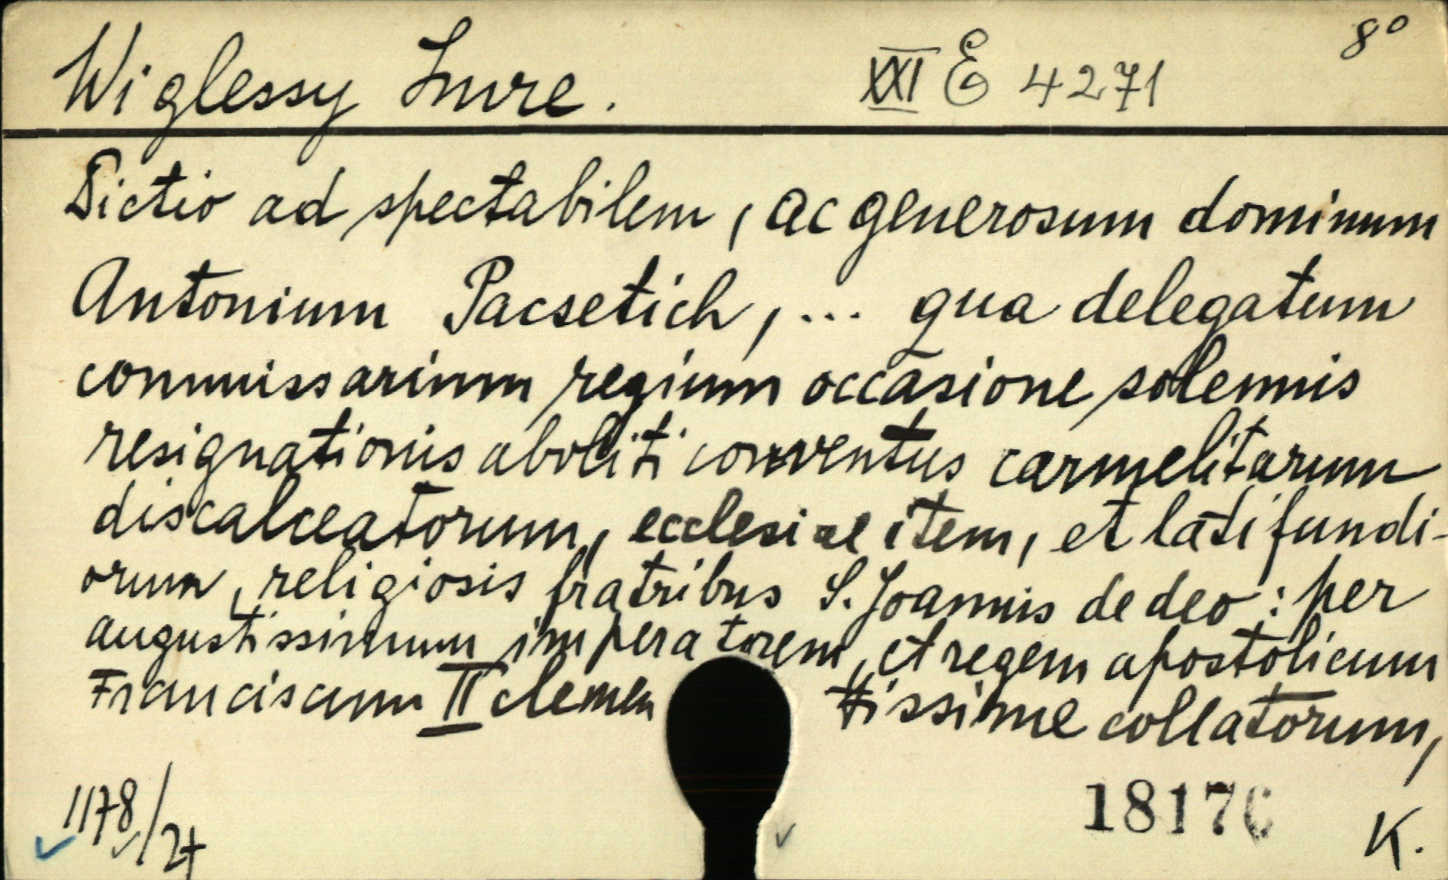 8°
Wiglessy Imre. XXI E 4271
Dictio ad spectabilem, ac generosum dominum
Antonium Pacsetich, ... qua delegatum
commissarium regium occasione solemnis
resignationis aboliti conventus carmelitarum
discalceatorum, ecclesiae item, et latifundi-
orum, religiosis fratribus S. Joannis de deo: per
augustissimum imperatorem, et regem apostolicum
Franciscum II clemen tissime collatorum,
1178/27
18176
K.